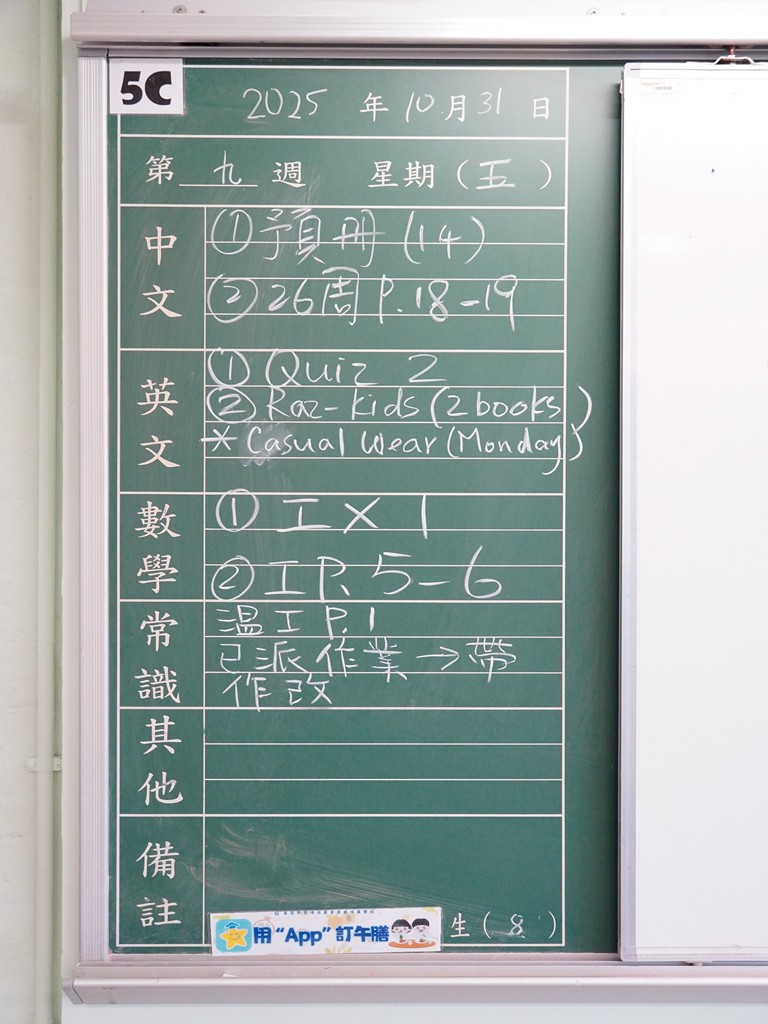 5C
2025 年 10 月 31 日
第 九 週 星期（五）
中文
① 預冊 (14)
② 26周 P.18-19
英文
① Quiz 2
② Raz-kids (2 books)
* Casual Wear (Monday)
數學
① 工 X 1
② 工 P. 5-6
常識
温工 P.1
已派作業→帶
作改
其他
備註
用 “App” 訂午膳
生 ( 8 )